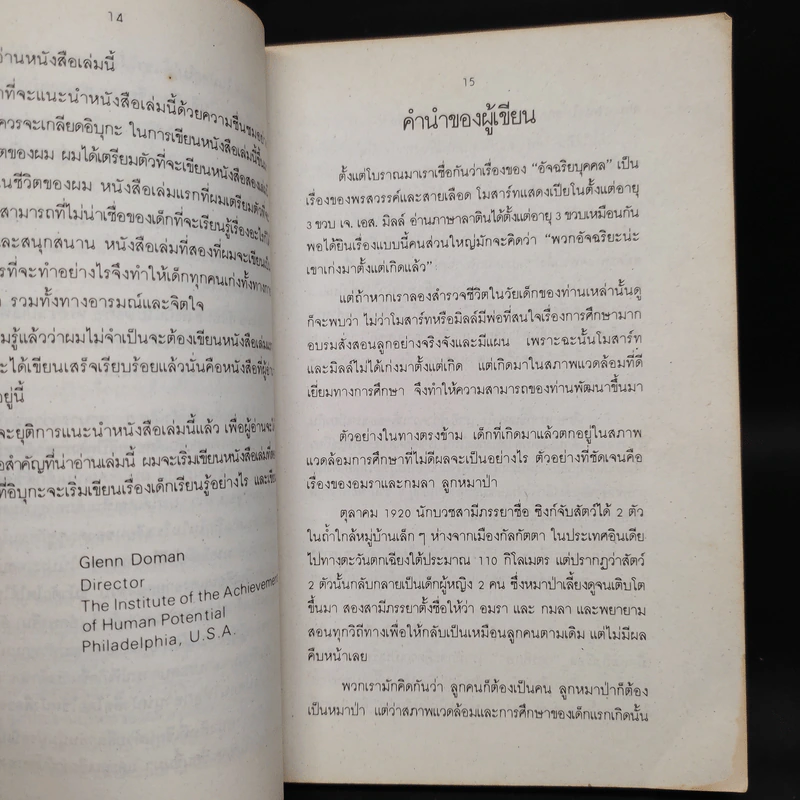 14
่านหนังสือเล่มนี้
ที่จะแนะนำหนังสือเล่มนี้ด้วยความชื่นชม
ควรจะเกลียดอิบุกะ ในการเขียนหนังสือเล่มนี้
ตของผม ผมได้เตรียมตัวที่จะเขียนหนังสือสองเล่ม
นชีวิตของผม หนังสือเล่มแรกที่ผมเตรียมตัว
สามารถที่ไม่น่าเชื่อของเด็กที่จะเรียนรู้เรื่อง
และสนุกสนาน หนังสือเล่มที่สองที่ผมจะเขียน
รที่จะทำอย่างไรจึงทำให้เด็กทุกคนเก่งทั้งทาง
รวมทั้งทางอารมณ์และจิตใจ
มรู้แล้วว่าผมไม่จำเป็นจะต้องเขียนหนังสือเล่ม
ะได้เขียนเสร็จเรียบร้อยแล้วนั่นคือหนังสือที่
อยู่นี้
จะยุติการแนะนำหนังสือเล่มนี้แล้ว เพื่อผู้อ่านจะ
อสำคัญที่น่าอ่านเล่มนี้ ผมจะเริ่มเขียนหนังสือเล่ม
ที่อิบุกะจะเริ่มเขียนเรื่องเด็กเรียนรู้อย่างไร และ
Glenn Doman
Director
The Institute of the Achievemen
of Human Potential
Philadelphia, U.S.A.
15
คำนำของผู้เขียน
ตั้งแต่โบราณมาเราเชื่อกันว่าเรื่องของ “อัจฉริยบุคคล” เป็น
เรื่องของพรสวรรค์และสายเลือด โมสาร์ทแสดงเปียโนตั้งแต่อายุ
3 ขวบ เจ. เอส. มิลล์ อ่านภาษาลาตินได้ตั้งแต่อายุ 3 ขวบเหมือนกัน
พอได้ยินเรื่องแบบนี้คนส่วนใหญ่มักจะคิดว่า “พวกอัจฉริยะน่ะ
เขาเก่งมาตั้งแต่เกิดแล้ว”
แต่ถ้าหากเราลองสำรวจชีวิตในวัยเด็กของท่านเหล่านั้นดู
ก็จะพบว่า ไม่ว่าโมสาร์ทหรือมิลล์มีพ่อที่สนใจเรื่องการศึกษามาก
อบรมสั่งสอนลูกอย่างจริงจังและมีแผน เพราะฉะนั้นโมสาร์ท
และมิลล์ไม่ได้เก่งมาตั้งแต่เกิด แต่เกิดมาในสภาพแวดล้อมที่ดี
เยี่ยมทางการศึกษา จึงทำให้ความสามารถของท่านพัฒนาขึ้นมา
ตัวอย่างในทางตรงข้าม เด็กที่เกิดมาแล้วตกอยู่ในสภาพ
แวดล้อมการศึกษาที่ไม่ดีผลจะเป็นอย่างไร ตัวอย่างที่ชัดเจนคือ
เรื่องของอมราและกมลา ลูกหมาป่า
ตุลาคม 1920 นักบวชสามีภรรยาชื่อ ซิงก์จับสัตว์ได้ 2 ตัว
ในถ้ำใกล้หมู่บ้านเล็ก ๆ ห่างจากเมืองกัลกัตตา ในประเทศอินเดีย
ไปทางตะวันตกเฉียงใต้ประมาณ 110 กิโลเมตร แต่ปรากฏว่าสัตว์
2 ตัวนั้นกลับกลายเป็นเด็กผู้หญิง 2 คน ซึ่งหมาป่าเลี้ยงดูจนเติบโต
ขึ้นมา สองสามีภรรยาตั้งชื่อให้ว่า อมรา และ กมลา และพยายาม
สอนทุกวิถีทางเพื่อให้กลับเป็นเหมือนลูกคนตามเดิม แต่ไม่มีผล
คืบหน้าเลย
พวกเรามักคิดกันว่า ลูกคนก็ต้องเป็นคน ลูกหมาป่าก็ต้อง
เป็นหมาป่า แต่ว่าสภาพแวดล้อมและการศึกษาของเด็กแรกเกิดนั้น